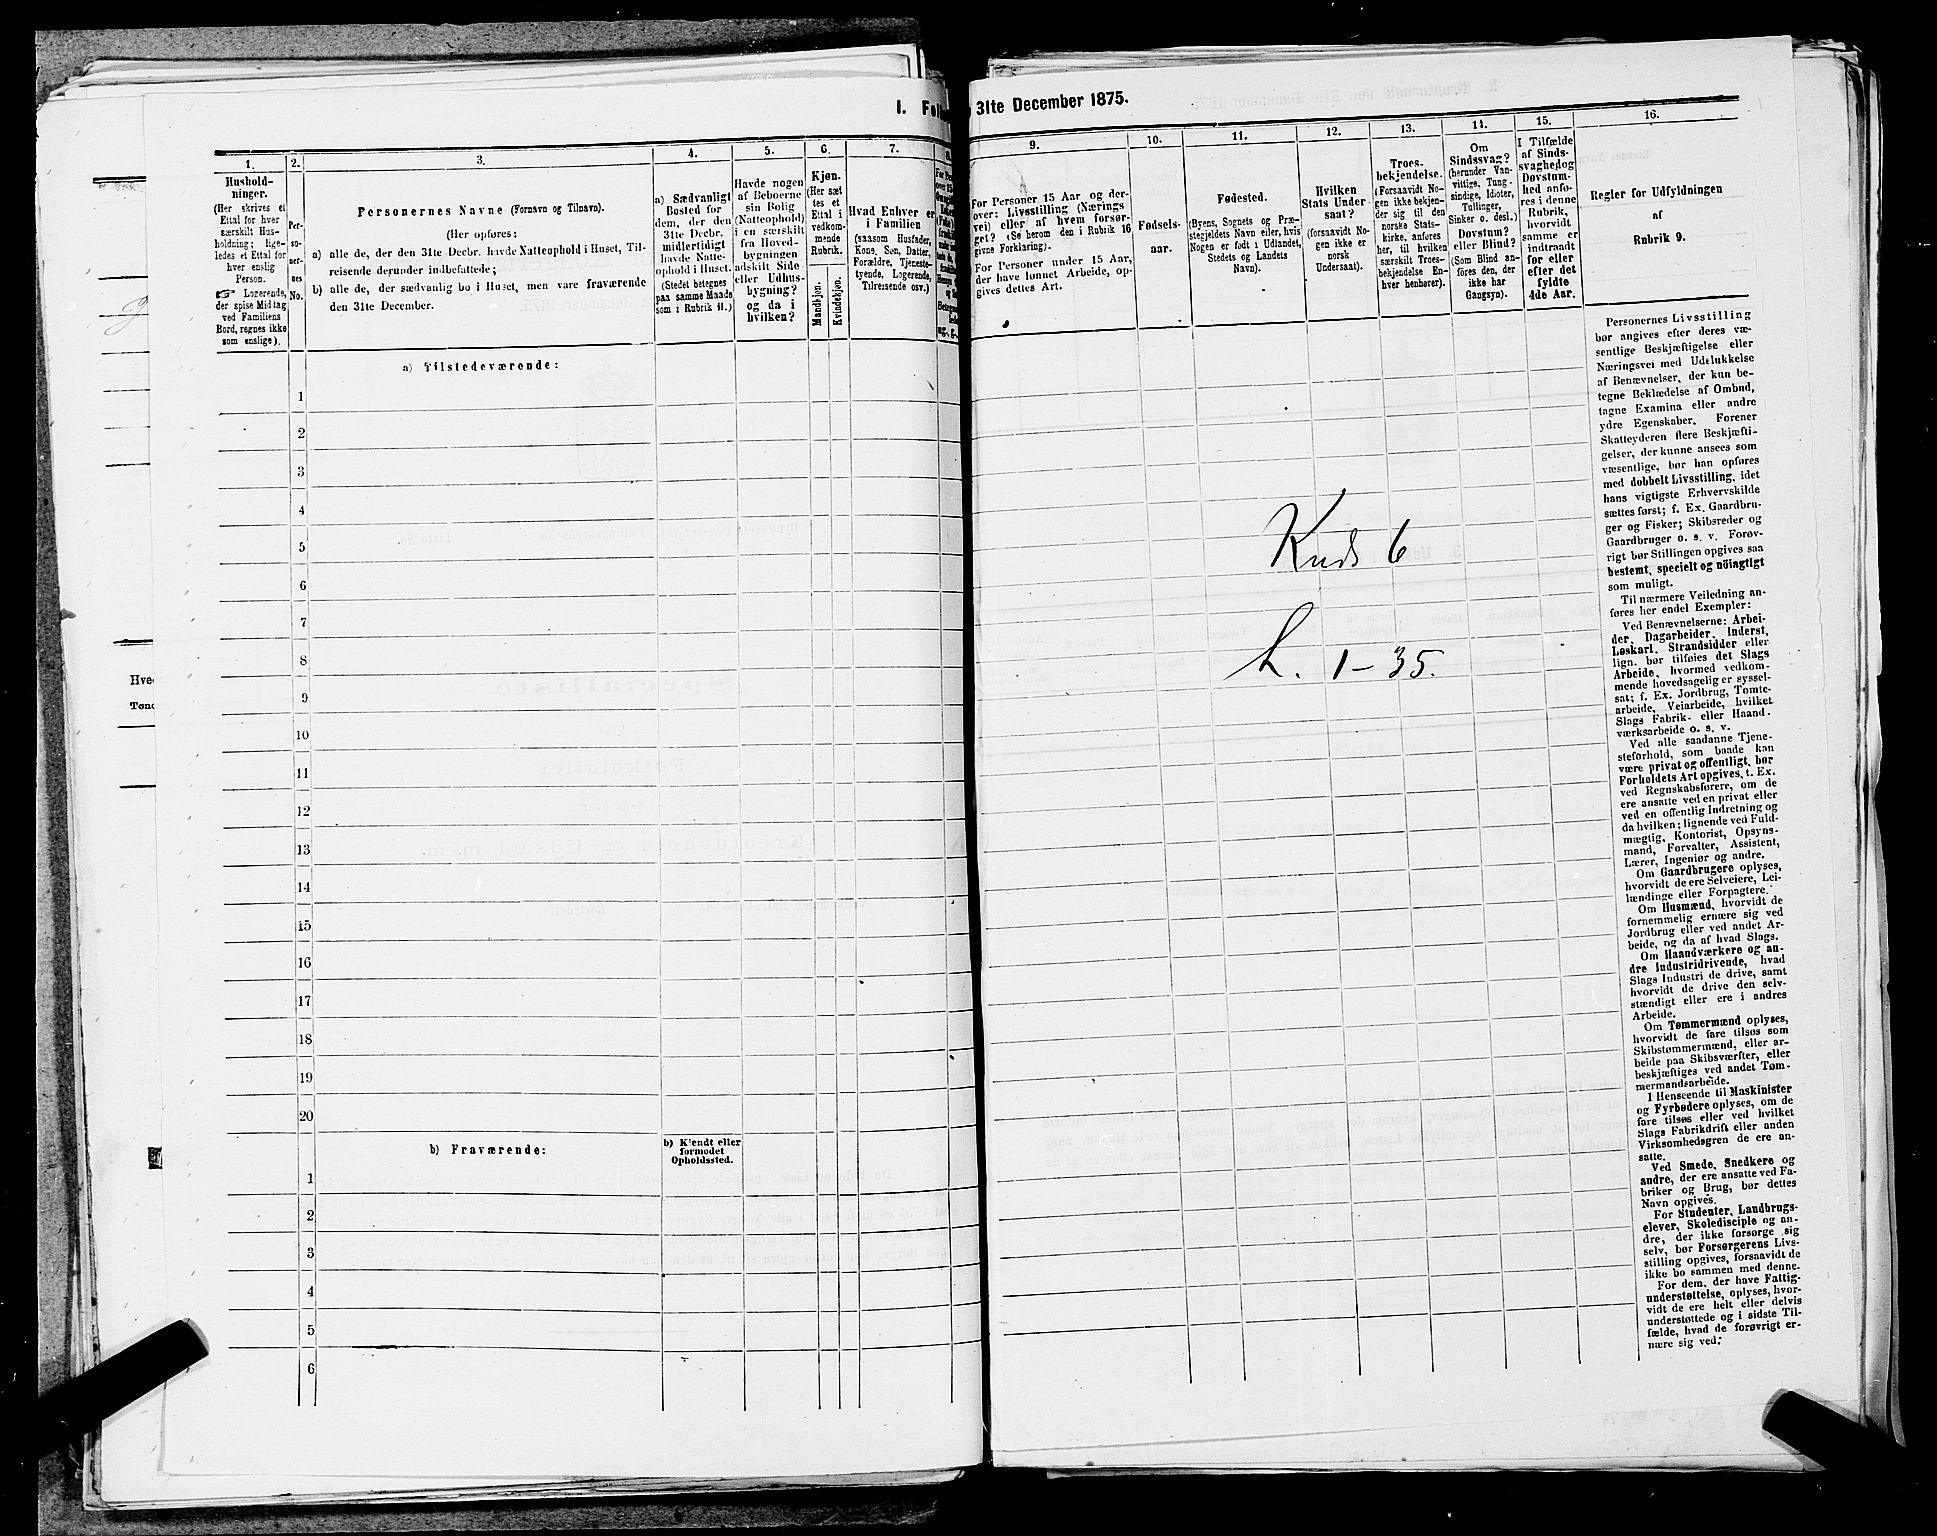 I. Fol
31te December 1875.
1.
2.
3.
4.
5.
6.
7.
8.
9.
10.
11.
12.
13.
14.
15.
16.
Hushold-
ninger.
(Her skrives et
Ettal for hver
særskilt Hus-
holdning; lige-
ledes et Ettal for
hver enslig
Person.
☞ Logerende,
der spise Midtag
ved Familiens
Bord, regnes ikke
som enslige).
Per-
so-
ner-
nes
No.
Personernes Navne (Fornavn og Tilnavn).
(Her opføres:
a) alle de, der den 31te Decbr. havde Natteophold i Huset, Til-
reisende derunder indbefattede;
b) alle de, der sædvanlig bo i Huset, men vare fraværende
den 31te December.
a) Sædvanligt
Bosted for
dem, der den
31te Decbr.
midlertidigt
havde Natte-
ophold i Huset.
(Stedet betegnes
paa samme Maade
som i Rubrik 11.)
Havde nogen
af Beboerne
sin Bolig
(Natteophold)
i en særskilt
fra Hoved-
bygningen
adskilt Side
eller Udhus-
bygning?
og da i
hvilken?
Kjøn.
(Her sæt
tes et
Ettal i
vedkom-
mende
Rubrik.
Mandkjøn.
Kvindekjøn.
Hvad Enhver er
i Familien
(saasom Husfader,
Kone, Søn, Datter,
Forældre, Tjeneste-
tyende, Logerende,
Tilreisende osv.)
For Personer 15 Aar og der-
over: Livsstilling (Nærings
vei) eller af hvem forsør-
get? (Se herom den i Rubrik 16
givne Forklaring).
For Personer under 15 Aar,
der have lønnet Arbeide, op-
gives dettes Art.
Fødsels-
aar.
Fødested.
(Byens, Sognets og Præ-
stegjeldets Navn eller, hvis
Nogen er født i Udlandet,
Stedets og Landets
Navn).
Hvilken
Stats Under
saat?
(forsaavidt No-
gen ikke er
norsk
Undersaat).
Troes-
bekjendelse.
(Forsaavidt No-
gen ikke bekjen-
der sig til den
norske Stats-
kirke, anføres
her, til hvilken
særskilt Troes-
bekjendelse En-
hver henhører).
Om
Sindssvag?
(herunder Van-
vittige, Tung-
sindige, Idioter,
Tullinger,
Sinker o. desl.)
Døvstum?
eller Blind?
(Som Blind an-
føres den, der
ikke har
Gangsyn).
I Tilfælde
af Sinds-
svaghed og
Døvstum-
hed anfø-
res i denne
Rubrik,
hvorvidt
samme er
indtraadt
før eller
efter det
fyldte
4de Aar.
Regler for Udfyldningen
af
Rubrik 9.
a) Tilstedeværende:
1
2
3
4
5
6
7
8
9
10
11
12
13
14
15
16
17
18
19
20
b) Fraværende:
b) Kjendt eller
formodet
Opholdssted.
1
2
3
4
5
6
Knds 6
L. 1-35.
Personernes Livsstilling
bør angives efter deres væ-
sentlige Beskjæftigelse eller
Næringsvei med Udelukkelse
af Benævnelser, der kun be-
tegne Beklædelse af Ombud,
tagne Examina eller andre
ydre Egenskaber. Forener
Skatteyderen flere Beskjæfti-
gelser, der kunne ansees som
væsentlige, bør han opføres
med dobbelt Livsstilling, idet
hans vigtigste Erhvervskilde
sættes først; f. Ex. Gaardbru-
ger og Fisker; Skibsreder og
Gaardbruger o. s. v. Forøv-
rigt bør Stillingen opgives saa
bestemt, specielt og nöiagtigt
som muligt.
Til nærmere Veiledning an-
føres her endel Exempler:
Ved Benævnelserne: Arbei-
der, Dagarbeider, Inderst,
Løskarl, Strandsidder eller
lign. bør tilføies det Slags
Arbeide, hvormed vedkom-
mende hovedsagelig er syssel-
sat; f. Ex. Jordbrug, Tomte-
arbeide, Veiarbeide, hvilket
Slags Fabrik- eller Haand-
værksarbeide o. s. v.
Ved alle saadanne Tjene-
steforhold, som baade kan
være privat og offentligt, bør
Forholdets Art opgives, t. Ex.
ved Regnskabsførere, om de
ere ansatte ved en privat eller
ved en offentlig Indretning og
da hvilken; lignende ved Fuld-
mægtig, Kontorist, Opsyns-
mand, Forvalter, Assistent,
Lærer, Ingeniør og andre.
Om Gaardbrugere oplyses,
hvorvidt de ere Selveiere, Lei-
lændinge eller Forpagtere.
Om Husmænd, hvorvidt de
fornemmelig ernære sig ved
Jordbrug eller ved andet Ar-
beide, og da af hvad Slags.
Om Haandværkere og an-
dre Industridrivende, hvad
Slags Industri de drive, samt
hvorvidt de drive den selv-
stændigt eller ere i andres
Arbeide.
Om Tømmermænd oplyses,
hvorvidt de fare tilsøs som
Skibstømmermænd, eller ar-
beide paa Skibsværfter, eller
beskjæftiges ved andet Tøm-
mermandsarbeide.
I Henseende til Maskinister
og Fyrbødere oplyses, om de
fare tilsøs eller ved hvilket
Slags Fabrikdrift eller anden
Virksomhedsgren de ere an-
satte.
Ved Smede, Snedkere og
andre, der ere ansatte ved Fa-
briker og Brug, bør dettes
Navn opgives.
For Studenter, Landbrugs-
elever, Skoledisciple og an-
dre, der ikke forsørge sig
selv, bør Forsørgerens Livs-
stilling opgives, forsaavidt de
ikke bo sammen med denne.
For dem, der have Fattig-
understøttelse, oplyses, hvor-
vidt de ere helt eller delvis
understøttede og i sidste Til-
fælde, hvad de forøvrigt er-
nære sig ved.